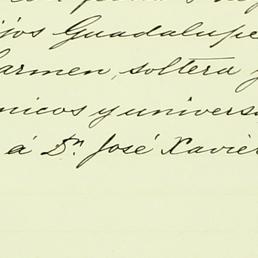 ijos Guadalupe
armen, soltera y
nicos y univers
á Dn. José Xavier